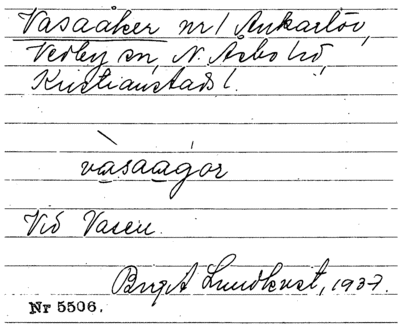 Vasaåker nr 1 Ankarlöv,
Vedby sn, N. Åsbo hd,
Kristianstads l.
vasaagor
Vid Vasen.
Birgit Lundkvist, 1937.
Nr 5506.